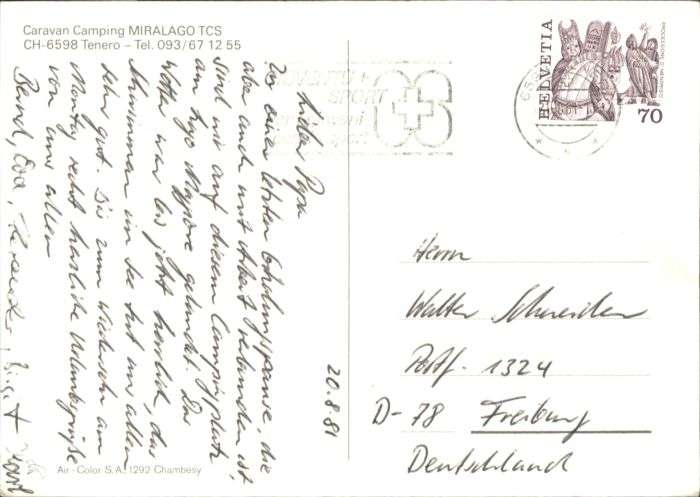 Caravan Camping MIRALAGO TCS
CH-6598 Tenero – Tel. 093/67 12 55
HELVETIA
70
JUVENTU +
SPORT
20.8.81
Lieber Papa
Vor einer letzten Erholungspause, die
aber auch mit Arbeit verbunden ist,
sind wir auf diesem Campingplatz
am Lago Maggiore gelandet. Das
Wetter war bis jetzt herrlich, das
Schwimmen im See tut uns allen
sehr gut. Bis zum Wiedersehn am
Montag recht herzliche Urlaubsgrüße
von uns allen
Bernd, Eva,
Herrn
Walter Schneider
Postf. 1324
D-78 Freiburg
Deutschland
Air-Color S.A. 1292 Chambesy